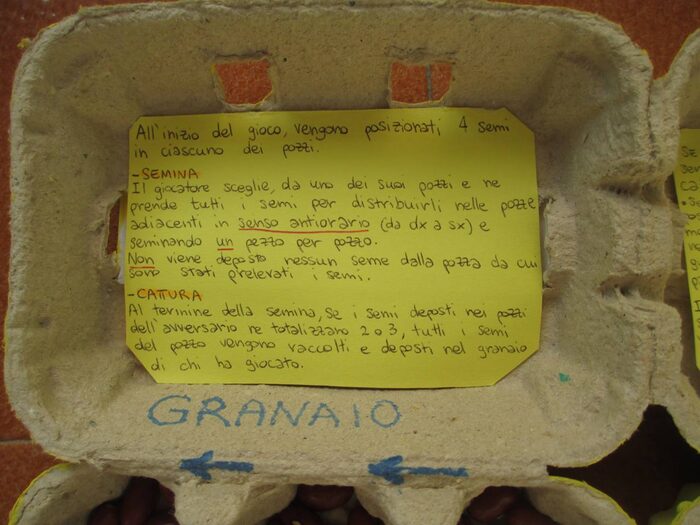 All'inizio del gioco, vengono posizionati 4 semi
in ciascuno dei pozzi.
-SEMINA
Il giocatore sceglie, da uno dei suoi pozzi e ne
prende tutti i semi per distribuirli nelle pozze
adiacenti in senso antiorario (da dx a sx) e
seminando un pezzo per pozzo.
Non viene deposto nessun seme dalla pozza da cui
sono stati prelevati i semi.
-CATTURA
Al termine della semina, se i semi deposti nei pozzi
dell'avversario ne totalizzano 2 o 3, tutti i semi
del pozzo vengono raccolti e deposti nel granaio
di chi ha giocato.
GRANAIO